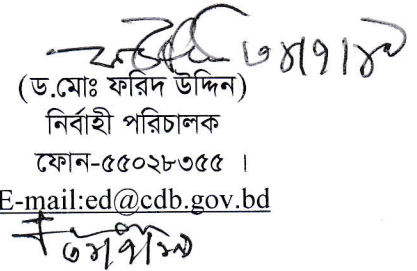 (ড.মোঃ ফরিদ উদ্দিন)
নির্বাহী পরিচালক
ফোন-৫৫০২৮৩৫৫ ।
E-mail:ed@cdb.gov.bd